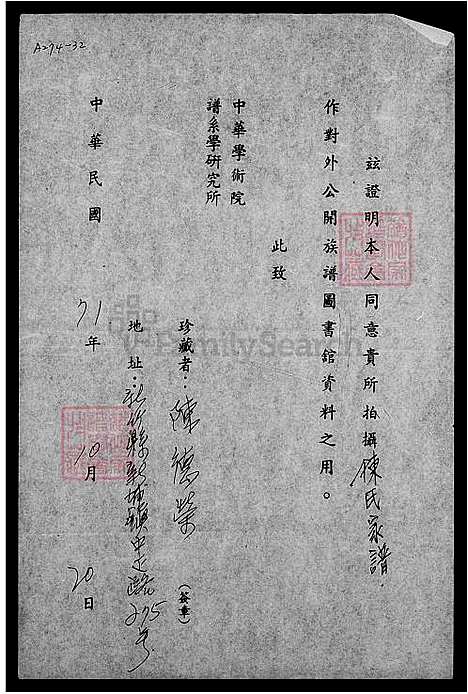 A274-32
茲證明本人同意貴所拍攝陳氏家譜.
作對外公開族譜圖書館資料之用。
此致
中華學術院
譜系學研究所
珍藏者：陳德榮(簽章)
地址：新竹縣新埔鎮中正路275号
中華民國71年10月20日
FamilySearch